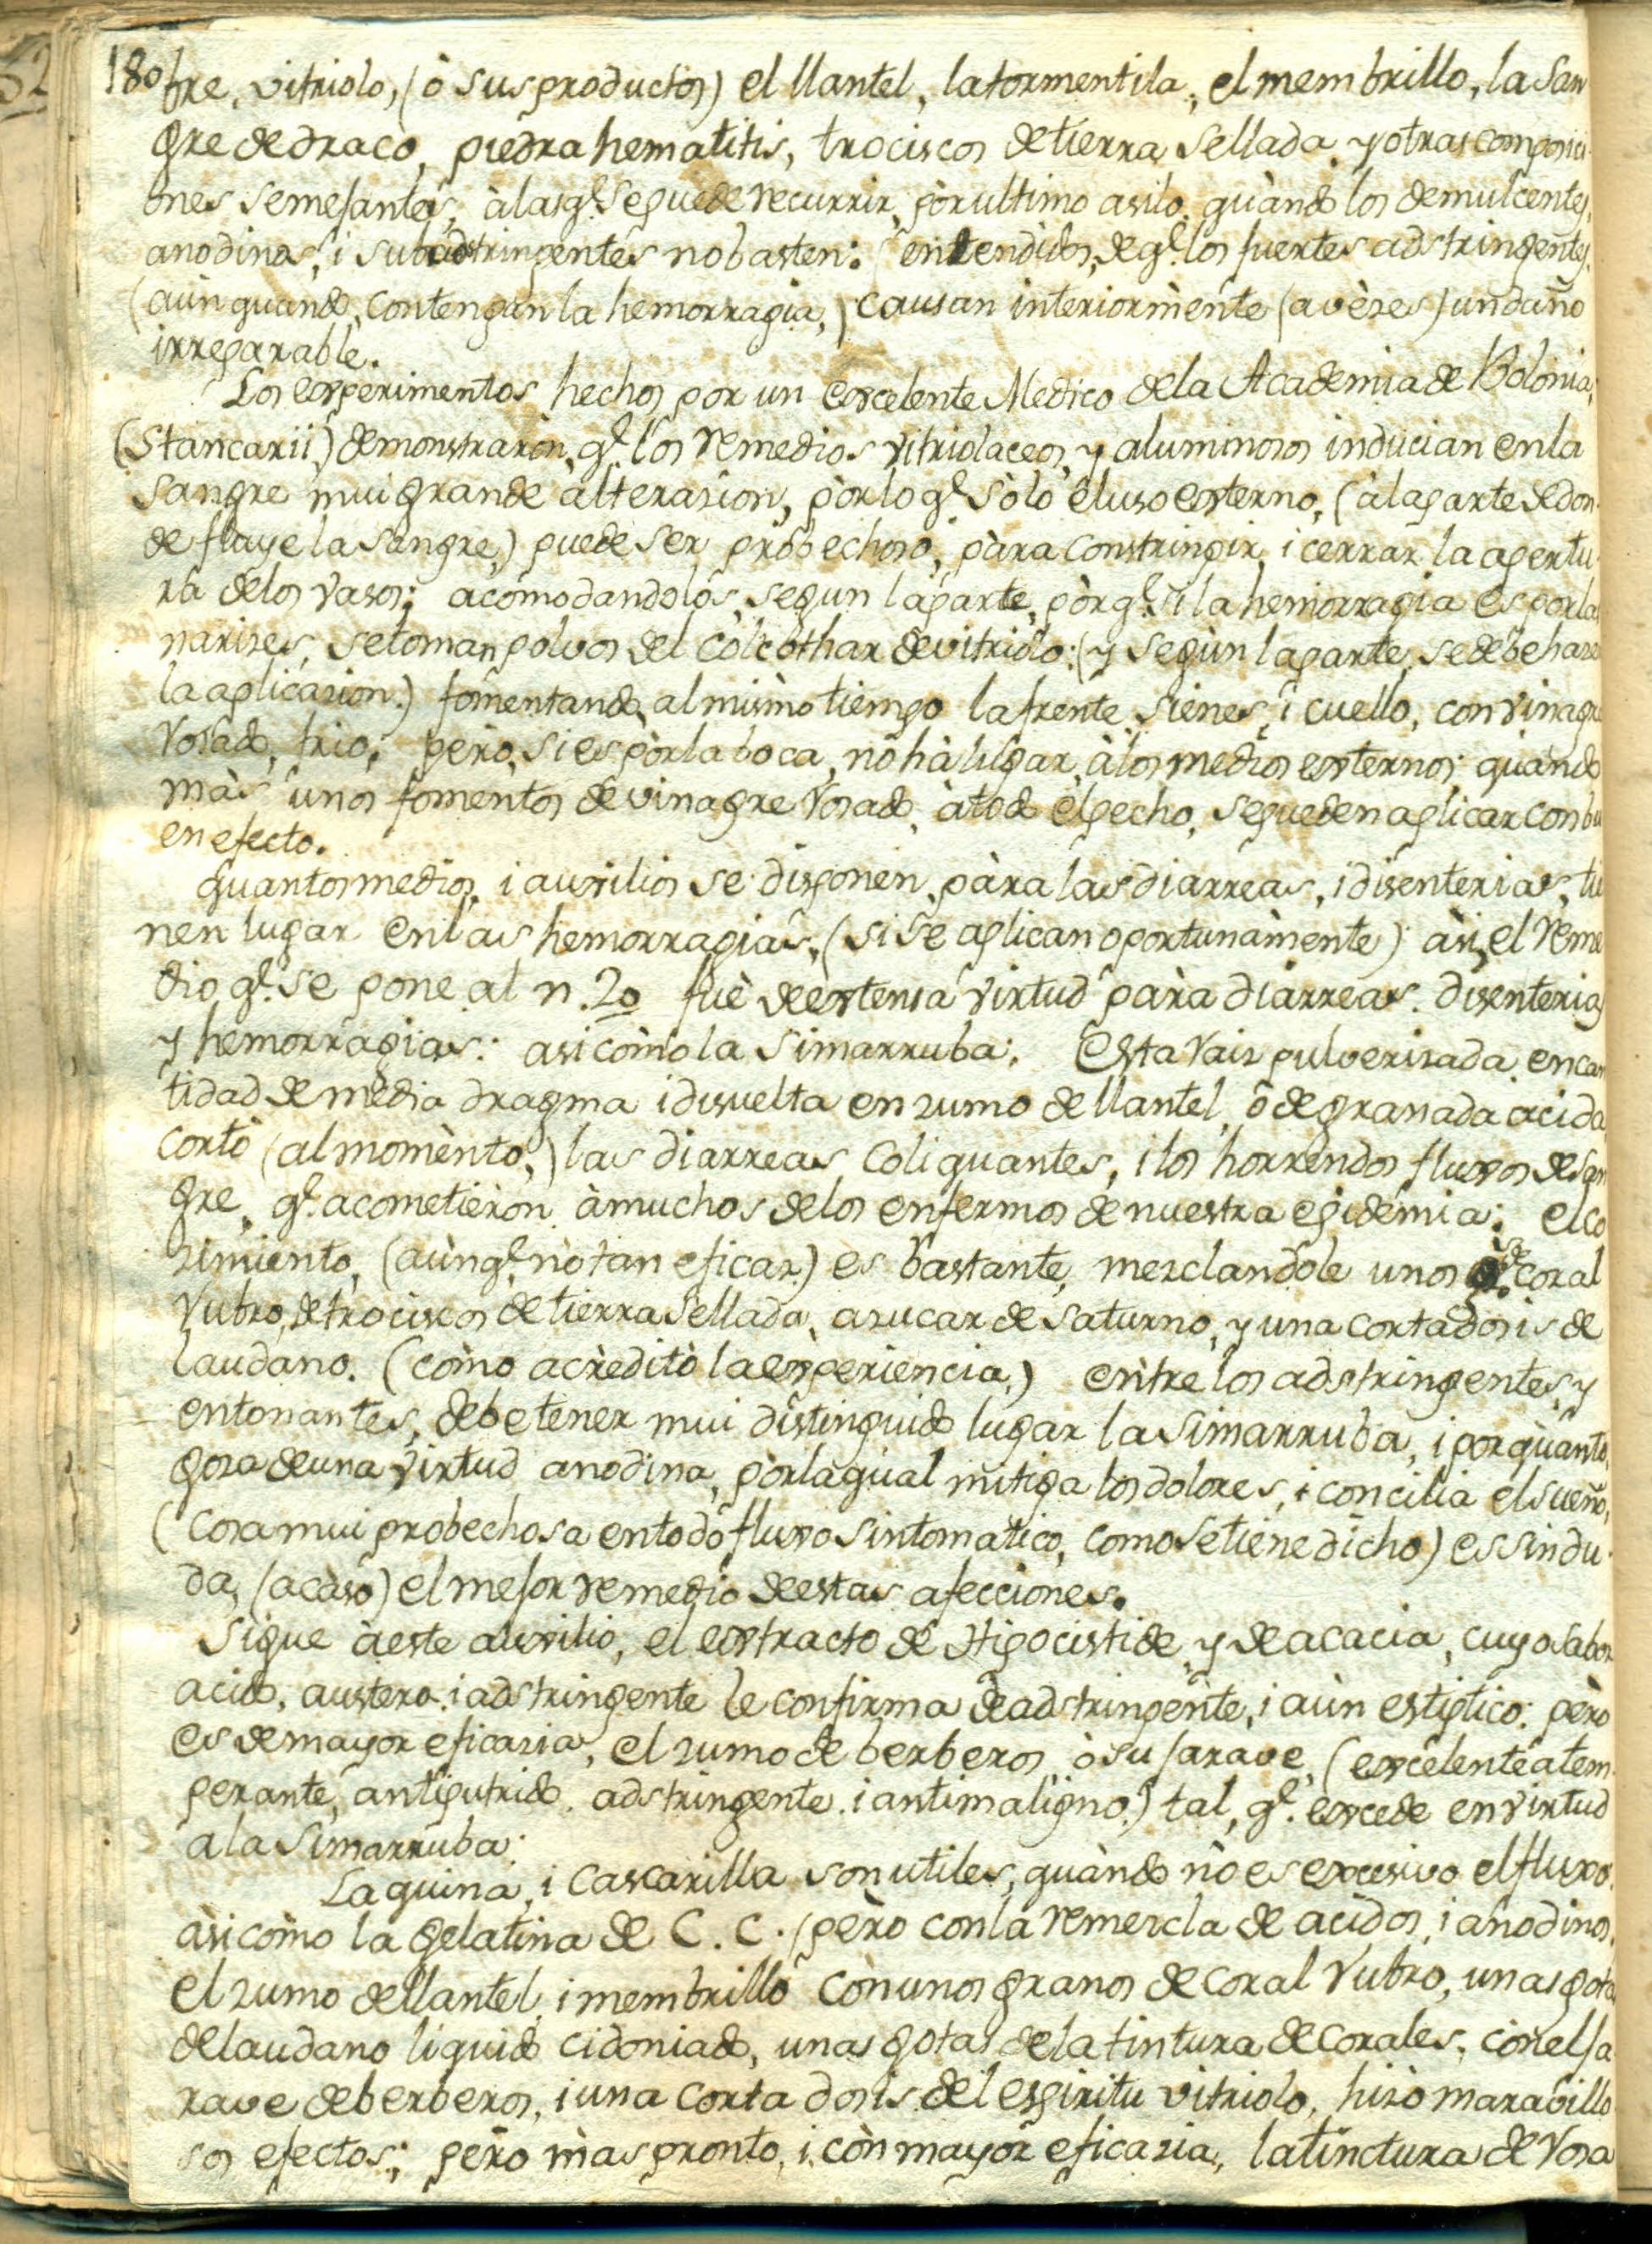 180 bre, vitriolo, (ò sus productos) el llantel, la tormentila, el membrillo, la San
gre de draco, piedra hematitis, trociscos de tierra sellada y otras composici
ones semejantes, à las q.^e se puede recurrir, pòr ultimo asilo, quàndo los demulcentes,
anodinos, i subadstringentes no basten: entendidos, de q.^e los fuertes adstringentes,
(aùn quando, contengan la hemorragia,) causan interiormènte (a vèzes) un daño
irreparable.
Los experimentos hechos por un excelente Medico de la Academia de Bolonia,
(Stancarii) demonstraron, q.^e los remedios vitriolaceos, y aluminosos inducian en la
sangre mui grande alterazion, pòr lo q.^e sòlo el uso externo, (à la parte de don-
de fluye la sangre,) puede ser probechoso, pàra constringir, i cerrar la apertu-
ra de los vasos; acomodandolos, segun la parte, pòrq.^e si la hemorragia es por las
narizes, se toman polvos del Colcothar de vitriolo: (y segùn la parte, se debe hazer
la aplicazion.) fomentando, al mismo tiempo la frente, sienes, i cuello, con vinagre
rosado, frio, pero, si es pòr la boca, nò hà lugar, à los medios externos; quàndo
màs unos fomentos de vinagre rosado, à todo el pecho, se pueden aplicar con bu
en efecto.
Quantos medios, i auxilios se disponen, pàra las diarreas, i disenterias, tie
nen lugar en las hemorragias, (si se aplican oportunàmente) àsi, el reme
dio q.^e se pone al n. 20 fuè de extensa virtud para diarreas, disenterias
y hemorragias: asi còmo la Simarruba: Esta raiz pulverizada, en can
tidad de media dragma i disuelta en zumo de llantel, ò de granada acida
cortò (al momènto,) las diarreas coliquantes, i los horrendos fluxos de San
gre, q.^e acometieron à muchos de los enfermos de nuestra epidemia: el co
zimiento, (aùnq.^e nò tan eficaz) es bastante, mezclandole unos g.^s de coral
rubro, de trociscos de tierra sellada, azucar de saturno, y una corta dosis de
laudano. (còmo acreditò la experiencia.) entre los adstringentes, y
entonantes, debe tener mui distinguido lugar la Simarruba, i por quànto,
goza de una virtud anodina, pòr la qual mitiga los dolores, i concilia el sueño,
(cosa mui probechosa en todo fluxo sintomatico, como se tiene dicho) es sin du-
da, (acàso) el mejor remedio de estas afecciones.
Sigue à este auxilio, el extracto de Hipocistide, y de acacia, cuyo sabor
acido, austero, i adstringente le confirma de adstringente, i aùn estiptico: pèro
es de mayor eficazia, el zumo de berberos, ò su jarave, (excelente atem-
perante, antiputrido, adstringente, i antimaligno.) tal, q.^e excede en virtud
a la Simarruba:
La quina, i cascarilla son utiles, quàndo nò es excesivo el fluxo,
àsi còmo la gelatina de C. C. (pèro con la remezcla de acidos, i anodinos,
el zumo de llantel, i membrillo con unos granos de coral rubro, unas gotas
de laudano liquido cidoniado, unas gotas de la tintura de corales, con el ja
rave de berberos, i una corta dosis del espiritu vitriolo, hizo maravillo
sos efectos; pero màs pronto, i còn mayor eficazia, la tinctura de rosa